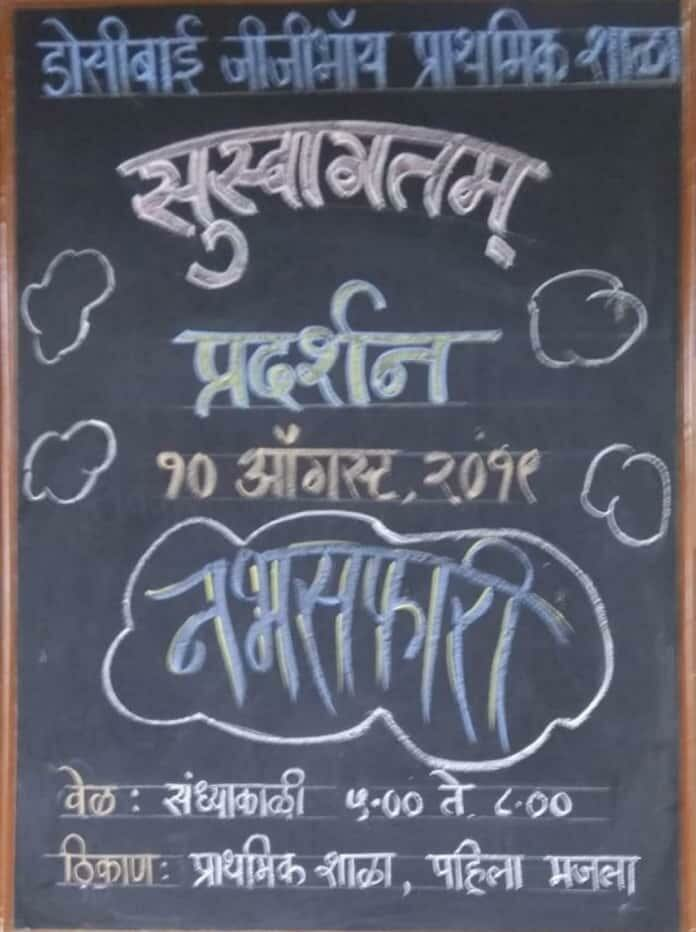 डोसीबाई जीजीभॉय प्राथमिक शाळा
सुस्वागतम्
प्रदर्शन
१० ऑगस्ट, २०१९
नभसफारी
वेळ : संध्याकाळी ५.०० ते ८.००
ठिकाण : प्राथमिक शाळा, पहिला मजला